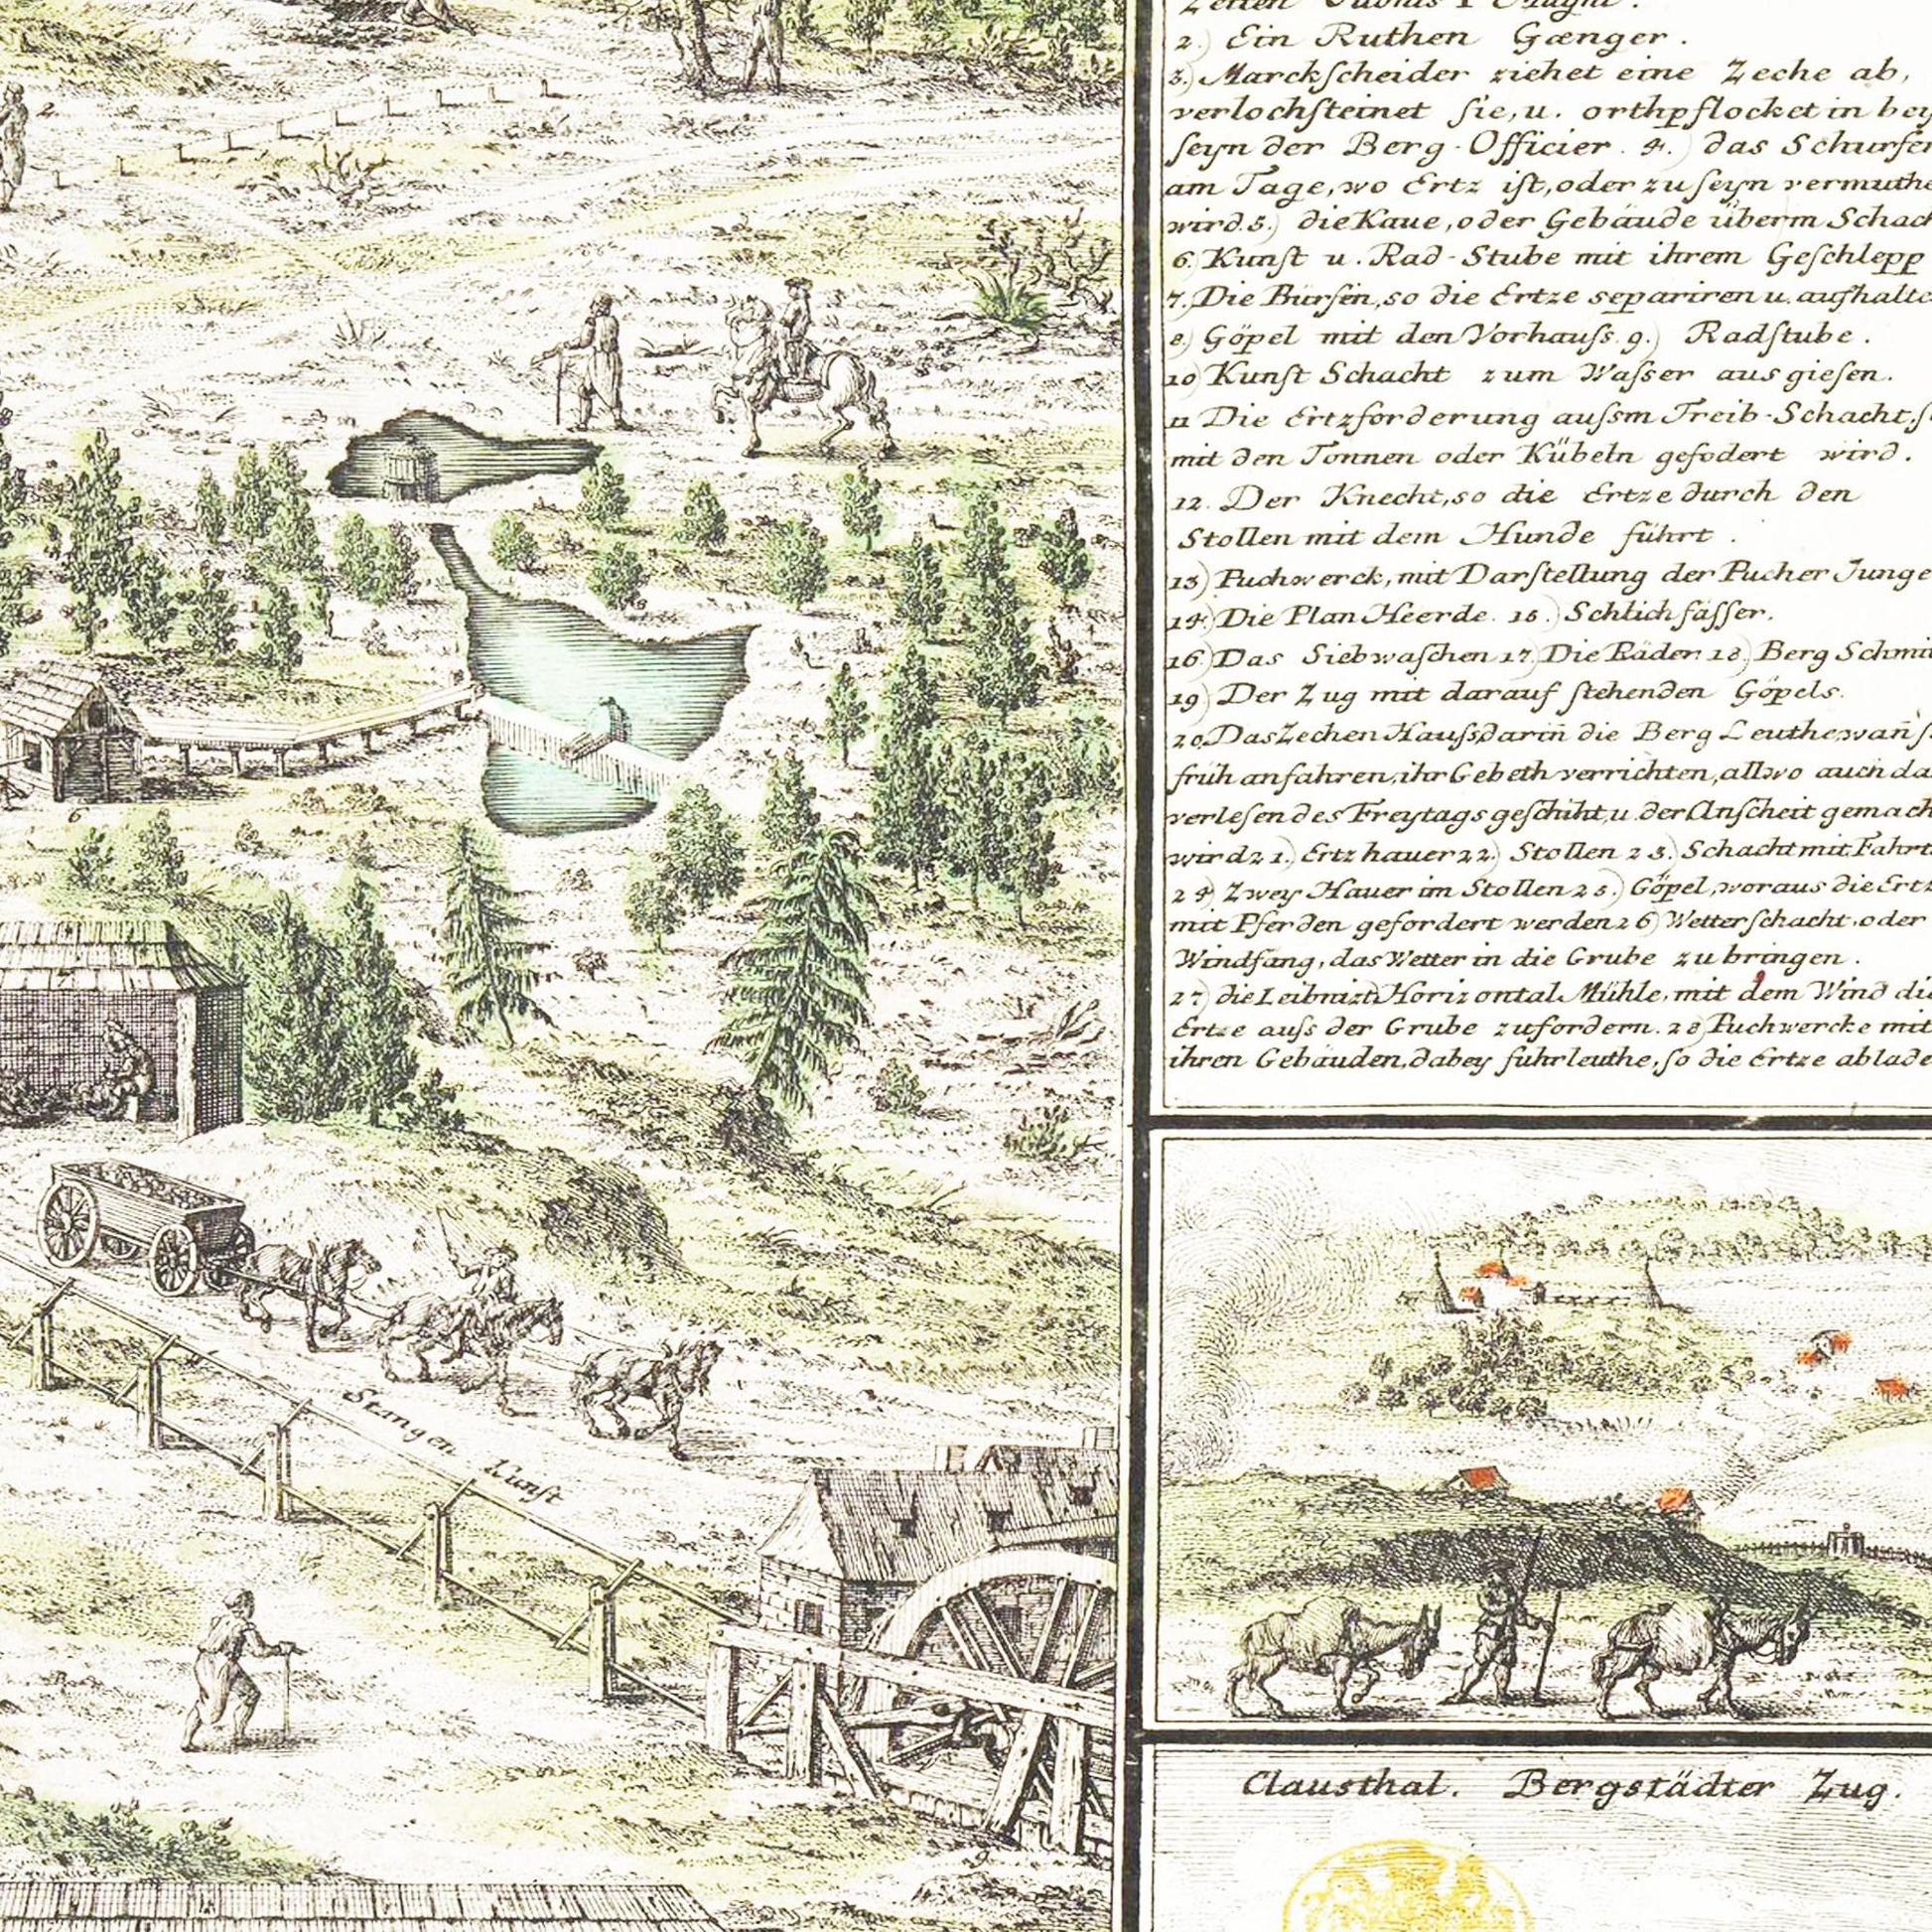 2.) Ein Ruthen Gænger.
3.) Marckſcheider ziehet eine Zeche ab,
verlochſteinet ſie, u. orthpflocket in bey
ſeyn der Berg-Officier. 4.) das Schurfen
am Tage, wo Ertz iſt, oder zu ſeyn vermuthe
wird. 5.) die Kaue, oder Gebäude überm Schach
6. Kunſt u. Rad-Stube mit ihrem Geſchlepp
7. Die Bürſen, so die Ertze separiren u. aufhalte
8) Göpel mit den Vorhauſs. 9.) Radſtube.
10 Kunſt Schacht zum Waſser ausgieſen.
11 Die Ertzforderung auſsm Treib-Schacht, ſ
mit den Tonnen oder Kübeln gefodert wird.
12. Der Knecht, so die Ertze durch den
Stollen mit dem Hunde führt.
13) Puchwerck, mit Darſtellung der Pucher Junge
14) Die Plan Heerde. 15.) Schlich fäſſer.
16) Das Siebwaſchen 17) Die Räder 18) Berg Schmi
19) Der Zug mit darauf ſtehenden Göpels.
20. Das Zechen Hauſs, darin̄ die Berg Leuthe, wan̄ ſ
früh anfahren, ihr Gebeth verrichten, allwo auch da
verleſen des Freytags geſchiht, u. der Anſcheit gemach
wird 21.) Ertzhauer 22.) Stollen 23.) Schacht mit Fahrt
24) Zwey Hauer im Stollen 25.) Göpel, woraus die Ertz
mit Pferden gefordert werden 26) Wetterſchacht, oder
Windfang, das Wetter in die Grube zu bringen.
27) die Leibnizti. Horizontal Mühle, mit dem Wind die
Ertze auſs der Grube zufordern. 28) Puchwercke mit
ihren Gebäuden, dabey fuhrleuthe, ſo die Ertze ablade
2.
6
7
Stangen Kunſt
9
Clausthal. Bergstädter Zug.